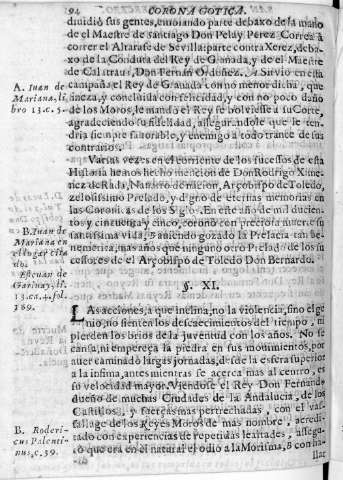 94 CORONA GOTICA.
dividiò sus gentes, embiando parte debaxo de la mano
de el Maestre de santiago Don Pelay Perez Correa à
correr el Altarafe de Sevilla: parte contra Xerez, deba-
xo de la Conduta del Rey de Granada, y de el Maestre
de Calatrava, Don Fernan Ordoñez. A Sirviò en esta
campaña el Rey de Granada con no menor dicha, que
fineza, y concluida con felicidad, y con no poco daño
de los Moros, le mandò el Rey se bolviesse a su Corte,
agradeciendo su fidelidad, assegurandole que le ten-
dria siempre favorable, y enemigo à todo trance de sus
contrarios.
A. Iuan de
Mariana, li
bro 13. c. 5.
Varias vezes en el corriente de los sucessos de esta
Historia hemos hecho mencion de Don Rodrigo Xime-
nez de Rada, Navarro de nacion, Arçobispo de Toledo,
zelosissimo Prelado, y digno de eternas memorias en
las Coronicas de los Siglos. En este año de mil ducien-
tos y cinquenta y cinco, coronò con preciosa muerte su
santissima vida, haviendo gozado la Prelacia tan be-
nemerita, mas años que ninguno otro Prelado de los su
cessores de el Arçobispo de Toledo Don Bernardo.
B. Iuan de
Mariana en
el lugar cita
do.
Estevan de
Garibay, li.
13. c. 4. fol.
169.
§. XI.
LAS acciones, a que inclina, no la violencia, sino el ge
nio, no sienten los descaecimientos del tiempo, ni
pierden los brios de la juventud con los años. No se
cansa, ni empereça la piedra en sus movimientos, por
aver caminado largas jornadas, desde la esfera superior
a la infima, antes mientras se acerca mas al centro, es
su velocidad mayor. Viendose el Rey Don Fernando
dueño de muchas Ciudades de la Andalucia, de los
Castillos, y fuerças mas pertrechadas, con el vas-
fallage de los Reyes Moros de mas nombre, acredi-
tado con experiencias de repetidas lealtades, assegu-
rò que era en el natural el odio a la Morisma, B con ha-
llar
B. Roderi-
cus Palenti-
nus, c. 39.